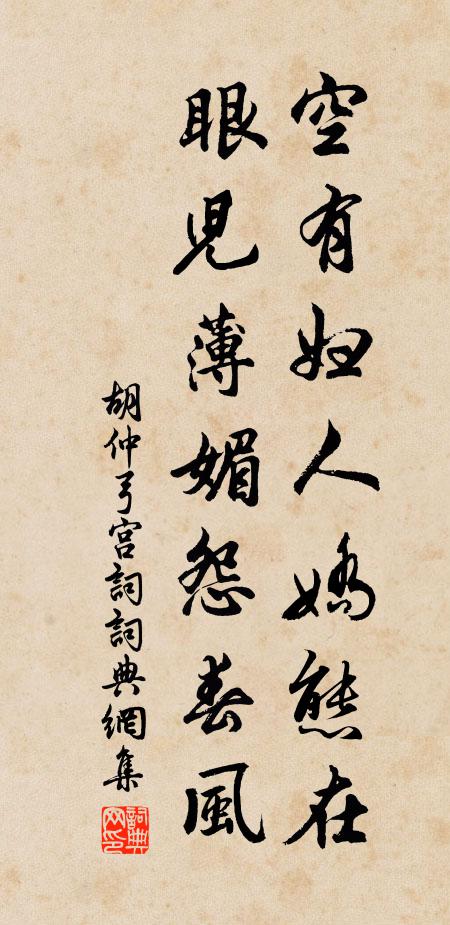 空有妇人娇態在
眼児薄媚怨春風
胡仲弓宫詞詞典網集
詞典网印